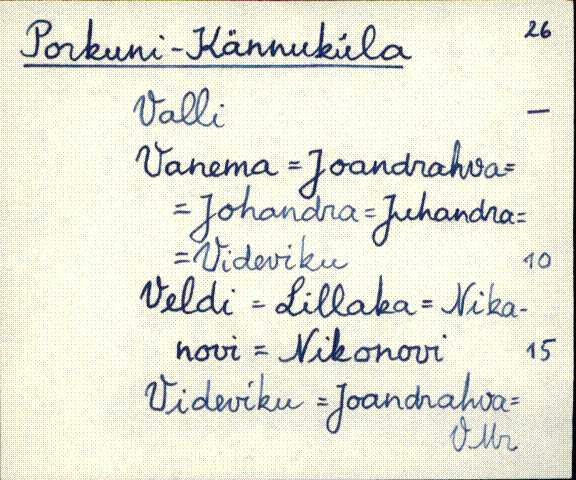 Porkuni-Kännuküla 26
Valli —
Vanema = Joandrahva=
= Johandra = Juhandra=
= Videviku 10
Veldi = Lillaka = Nika-
novi = Nikonovi 15
Videviku = Joandrahva=
VMr